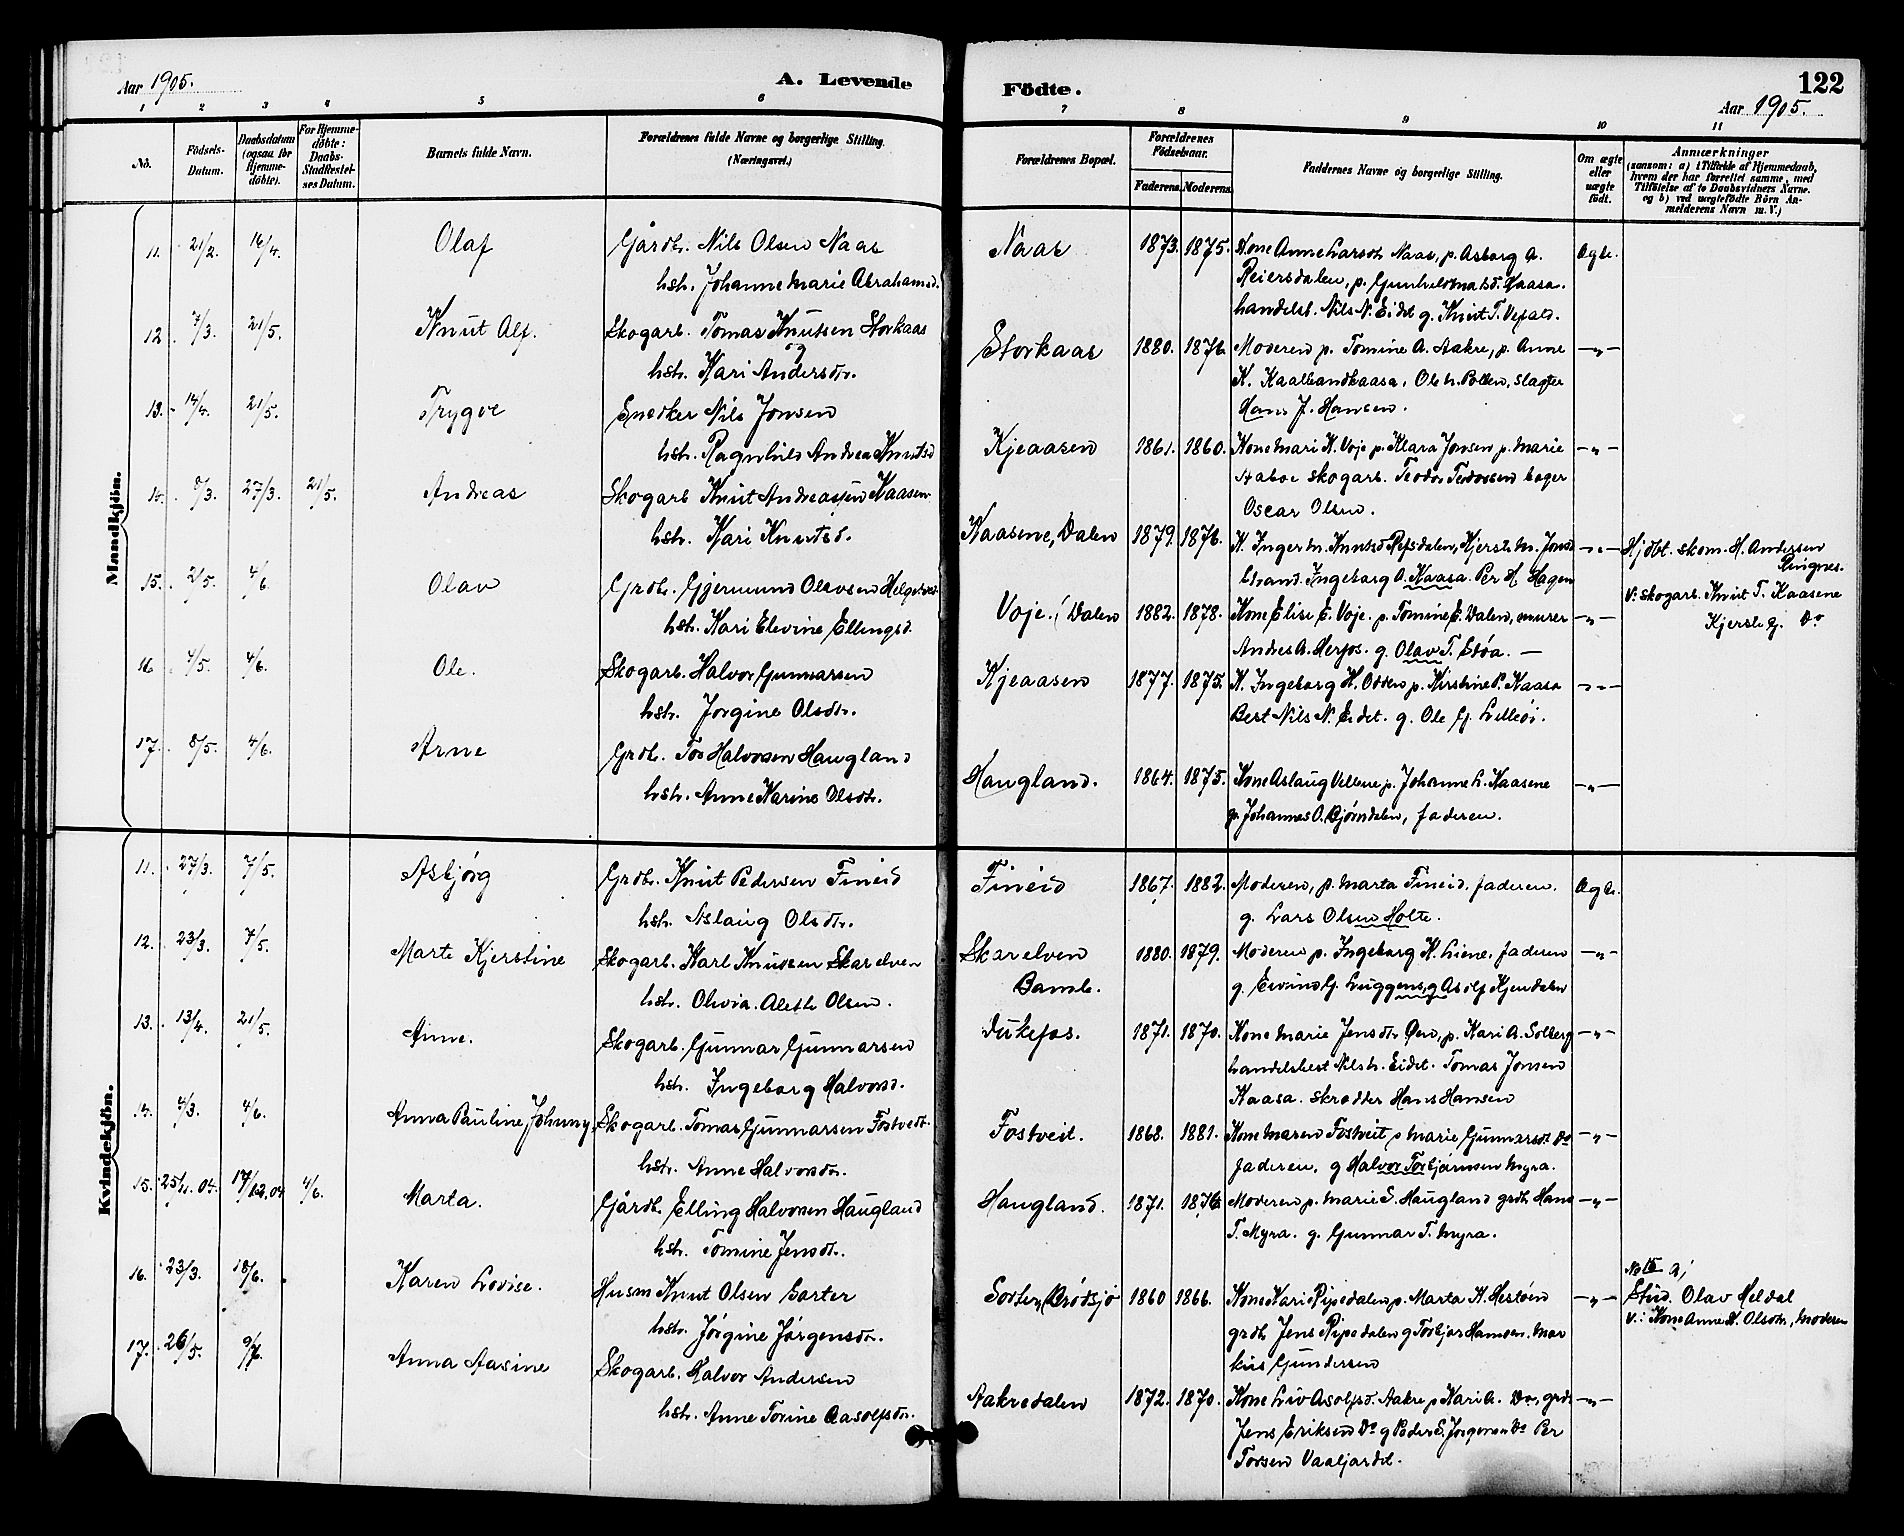 Aar 1905.
A. Levende
Födte.
122
Aar 1905.
1 2 3 4 5 6 7 8 9 10 11
No.
Födsels-Datum.
Daabsdatum (ogsaa for Hjemme-döbte).
For Hjemme-döbte: Daabs-Stadfæstel-ses Datum.
Barnets fulde Navn.
Forældrenes fulde Navne og borgerlige Stilling (Næringsvei.)
Forældrenes Bopæl.
Forældrenes Födselsaar.
Faderens. Moderens.
Faddernes Navne og borgerlige Stilling.
Om ægte eller uægte födt.
Anmærkninger
(saasom: a) i Tilfælde af Hjemmedaab,
hvem der har forrettet samme, med
Tilföielse af to Daabsvidners Navne.
og b) ved uægtefödte Börn An-
melderens Navn m. V.)
Mandkjön.
11. 21/2. 16/4. Olaf Gårdbr. Nils Olsen Naas
hstr. Johanne Marie Abrahamsd.
Naas 1873. 1875. Kone Anne Larsdtr Naas, p. Asborg A.
Reiersdalen, p. Gunhild Matsd. Kaasa.
handelsb. Nils N. Eidet g. Knut T. Vefald. Ægte.
12. 7/3. 21/5. Knut Alf. Skogarb. Tomas Knutsen Storkaas
og
hstr. Kari Andersdtr.
Storkaas 1880. 1876. Moderen p. Tomine A. Aakre, p. Anne
K. Kaasa, Ole N. Pollen, slagter
Hans J. Hansen. —„—
13. 14/4. 21/5. Trygve Snedker Nils Jonsen
hstr. Ragnhild Andrea Knutsd
Kjeaasen 1861. 1860. Kone Mari K. Voje p. Klara Jonsen p. Marie
skogarb. Teodor Tedossen bager
Oscar Olsen. —„—
14. 8/3. 27/3. 21/5. Andreas Skogarb Knut Andreassen Kaasen
hstr. Kari Knutsd.
Kaasene, Dalen 1879. 1876. K. Inger M. Knutsd Refsdalen, Kjersti M. Jonsd
Strand. Ingeborg A. Kaasa. Per H. Hagen —„—
Hjdbt. skom. H. Andersen
Ringnes.
V: skogarb. Knut T. Kaasene
Kjersti G. Do
15. 2/5. 4/6. Olav Grdbr. Gjermund Olavsen
hstr. Kari Elevine Ellingsd.
Voje. i Dalen 1882. 1878. Kone Elise E. Voje. p. Tomine E. Dalen, murer
Andres A. Herfos. g. Olav T. Stöa. — —„—
16. 4/5. 4/6. Ole. Skogarb. Halvor Gunnarsen
hstr. Jorgine Olsdtr.
Kjeaasen 1877. 1875. K. Ingeborg H. Odden p. Kirstine P. Kaasa
Best Nils N. Eidet. g. Ole G. Lilleöi. —„—
17. 8/5. 4/6. Arne Grdbr. Tor Halvorsen Haugland
hstr. Anne Karine Olsdtr.
Haugland. 1864. 1875. Kone Aslaug p. Johanne L. Kaasene
g. Johannes O. Bjørndalen, faderen. —„—
Kvindekjön.
11. 27/3. 7/5. Asbjörg Grdbr. Knut Pedersen Fineid
hstr. Aslaug Olsdtr.
Fineid 1867. 1882. Moderen, p. Marta Fineid. faderen.
g. Lars Olsen Holte. Ægte.
12. 23/3. 7/5. Marte Kjerstine Skogarb. Karl Knutsen Skarelven
hstr. Olivia. Alette Olsen.
Skarelven
Bamle. 1880. 1879. Moderen p. Ingeborg K. Liene. faderen
g. Eivind G. Luggens, g Asolf Kjendalen —„—
13. 13/4. 21/5. Anne. Skogarb. Gunnar Gunnarsen
hstr. Ingeborg Halvorsd.
Dukefos. 1871. 1870. Kone Marie Jensdtr Öen, p. Kari A. Solberg
handelsbest Nils N. Eidet. Tomas Jonsen
Kaasa. skrædder Hans Hansen —„—
14. 4/3. 4/6. Anna Pauline Johnny. Skogarb. Tomas Gunnarsen Fostvedt.
hstr. Anne Halvorsdtr.
Fostveit. 1868. 1881. Kone Maren Fostveit p Marie Gunnarsdtr Do
faderen, g Halvor Torbjørnsen Myra. —„—
15. 25/11. 04. 17/12. 04 4/6. Marta. Gårdbr. Elling Halvorsen Haugland
hstr. Tomine Jensdtr.
Haugland. 1871. 1876 Moderen p. Marie S. Haugland grdbr Hans
T. Myra. g. Gunnar T. Myra. —„—
16. 23/3. 18/6. Karen Lovise. Husm Knut Olsen Sorter
hstr. Jörgine Jörgensdtr.
Sorter, Brødsjø 1860 1866. Kone Kari Ripedalen p. Marta K. Hestöen
grdbr Jens Ripedalen g Torbjør Hansen. Mar
kus Gundersen —„—
No 15 a)
Stud. Olav Heldal
V.: Kone Anne K. Olsdtr., Moderen
17. 26/5. 9/7. Anna Aasine Skogarb. Halvor Andersen
hstr. Anne Torine Aasolfsdtr.
Aakredalen 1872. 1870. Kone Liv Asolfsd. Aakre p Kari A. Do, grdb
Jens Eriksen Do g Peder S. Jorgensen Do Per
Torsen Vaaljordet. —„—